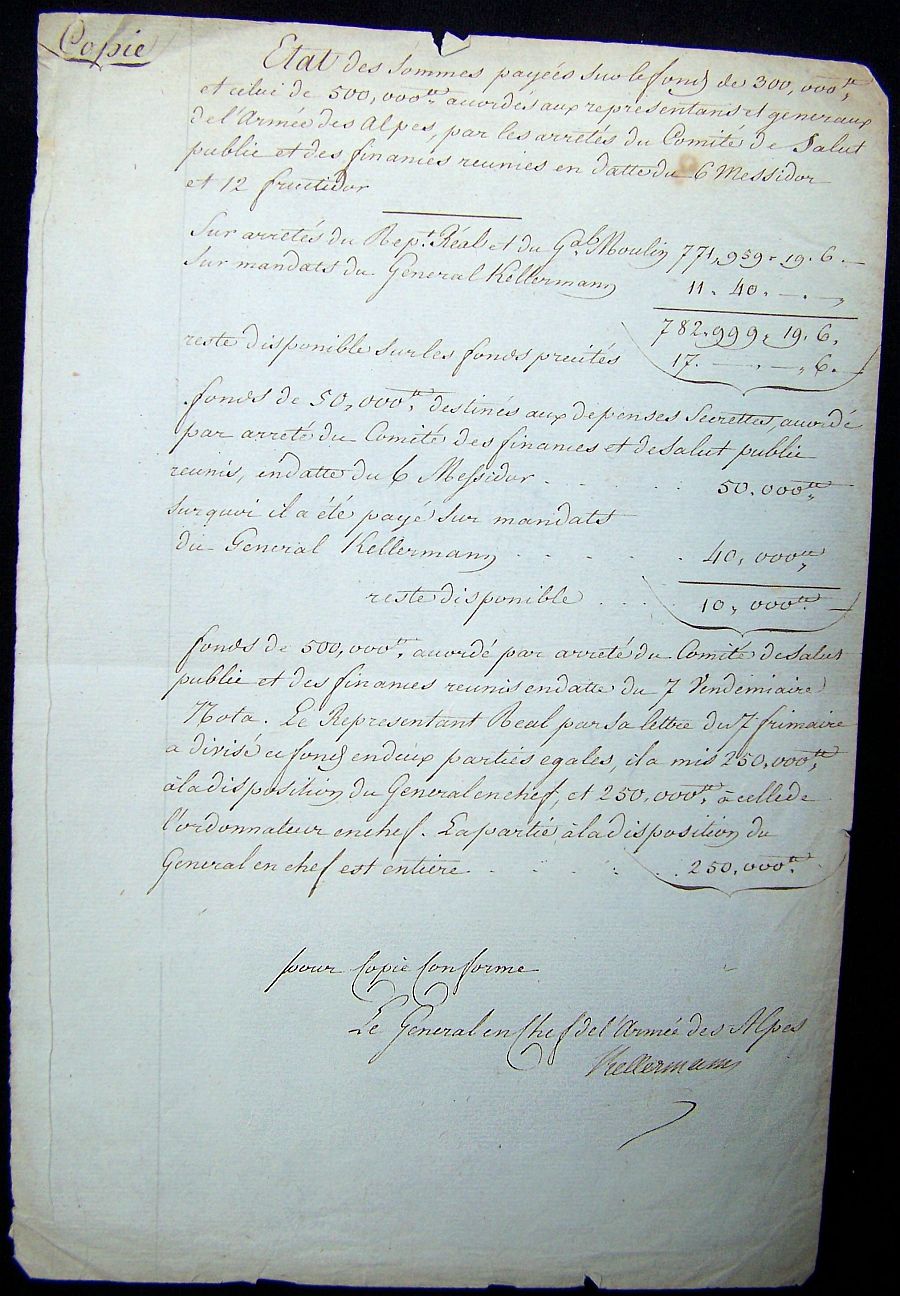 Copie
Etat des sommes payées sur le fond de 300,000.tt
et celui de 500,000tt acordés aux représentans et generaux
de l'Armée des Alpes, par les arretés du Comité de Salut
public et des finances reunies en datte du 6 Messidor
et 12 fructidor
Sur arretés du Rept. Réal et du Gal. Moulin 771,959. 19. 6.
Sur mandats du General Kellermann 11. 40. — . — .
782,999. 19. 6.
reste disponible sur les fonds precités 17. — . — . 6.
fonds de 50,000tt. destinés aux depenses Secrettes, acordé
par arreté du Comité des finances et de Salut public
reunis, en datte du 6 Messidor . . . . 50.000tt.
sur quoi il a été payé sur mandats
du General Kellermann . . . . . 40,000tt.
reste disponible . . . 10,000tt.
fonds de 500,000tt. acordé par arreté du Comité de Salut
public et des finances reunis en datte du 7 Vendémiaire
Nota. Le Representant Real par sa lettre du 7 frimaire
a divisé ce fond en deux parties egales, il a mis 250,000tt.
à la disposition du General en chef, et 250,000tt. à celle de
l'ordonnateur en chef. La partie à la disposition du
General en chef est entiere . . . . . 250,000tt.
pour Copie Conforme
Le General en Chef de l'Armée des Alpes
Kellermann